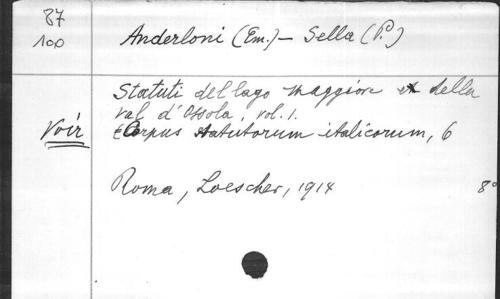 87
100
Anderloni (Em.) - Sella (P.)
Statuti del lago Maggiore e della
val d'Ossola, vol. 1.
Voir
Corpus statutorum italicorum, 6
Roma, Loescher, 1914
8°